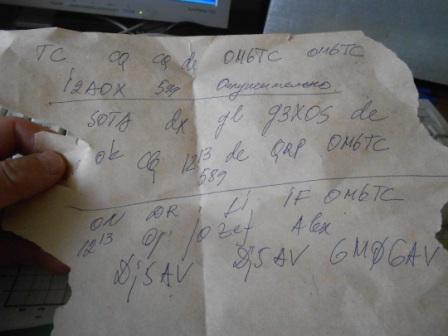 TC CQ CQ de OM6TC OM6TC
i2AOX 599
SOTA dx gl g3XOS de
ok CQ 12 13 de QRP OM6TC
589
ON DR li IF OM6TC
12 13 Op jozef Alex
Dj5AV Dj5AV 6MØ6AV